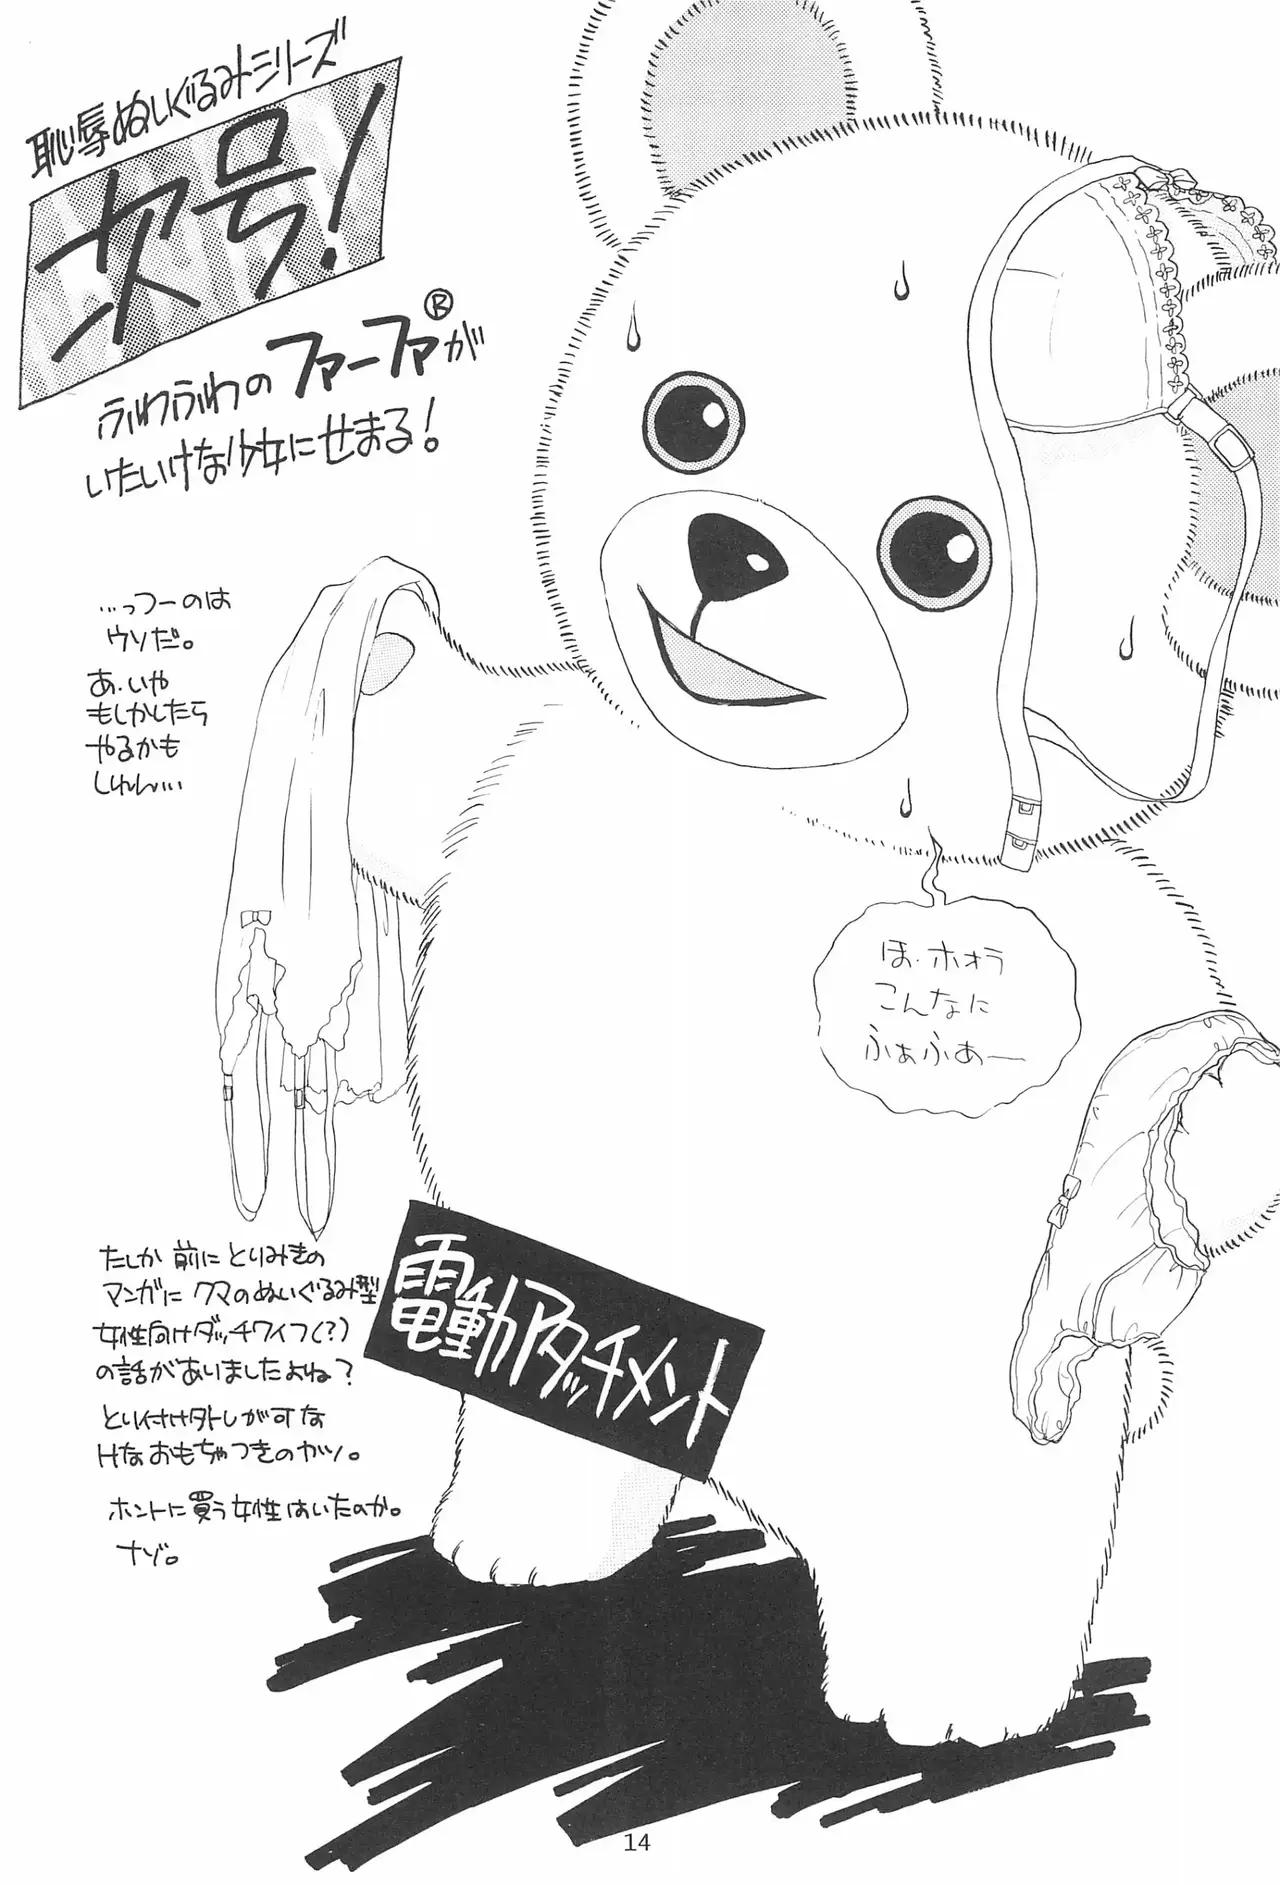 恥辱ぬいぐるみシリーズ
次号!
ふわふわのファーファ®が
いたいけな少女にせまる!
…っつーのは
ウソだ。
あ、いや
もしかしたら
やるかも
しれん…
ほ、ホォラ
こんなに
ふぁふあー
たしか前にとりみきの
マンガにクマのぬいぐるみ型
女性向けダッチワイフ(?)
の話がありましたよね?
とり付け外しが可な
Hなおもちゃつきのヤツ。
ホントに買う女性はいたのか。
ナゾ。
電動アタッチメント
14